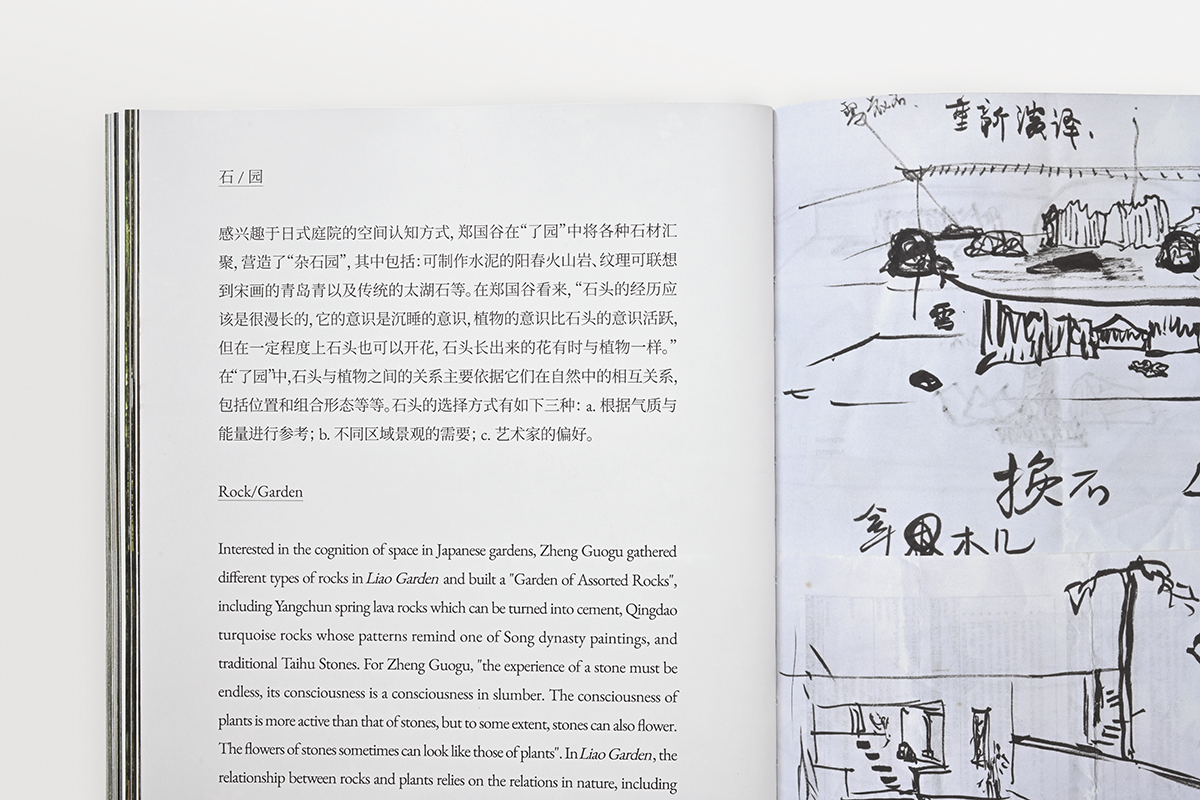 石 / 园
感兴趣于日式庭院的空间认知方式, 郑国谷在“了园”中将各种石材汇
聚, 营造了“杂石园”, 其中包括: 可制作水泥的阳春火山岩、纹理可联想
到宋画的青岛青以及传统的太湖石等。在郑国谷看来, “石头的经历应
该是很漫长的, 它的意识是沉睡的意识, 植物的意识比石头的意识活跃,
但在一定程度上石头也可以开花, 石头长出来的花有时与植物一样。”
在“了园”中,石头与植物之间的关系主要依据它们在自然中的相互关系,
包括位置和组合形态等等。石头的选择方式有如下三种: a. 根据气质与
能量进行参考; b. 不同区域景观的需要; c. 艺术家的偏好。
Rock/Garden
Interested in the cognition of space in Japanese gardens, Zheng Guogu gathered
different types of rocks in Liao Garden and built a "Garden of Assorted Rocks",
including Yangchun spring lava rocks which can be turned into cement, Qingdao
turquoise rocks whose patterns remind one of Song dynasty paintings, and
traditional Taihu Stones. For Zheng Guogu, "the experience of a stone must be
endless, its consciousness is a consciousness in slumber. The consciousness of
plants is more active than that of stones, but to some extent, stones can also flower.
The flowers of stones sometimes can look like those of plants". In Liao Garden, the
relationship between rocks and plants relies on the relations in nature, including
重新演译、
雪
换石
木几